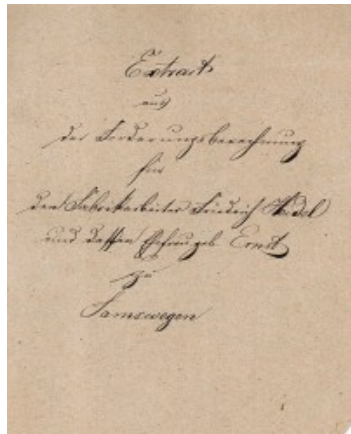 Extract
aus
der Forderungsberechnung
für
den Fabrikarbeiter Friedrich Wedel
und dessen Ehefrau geb. Ernst
zu
Samswegen